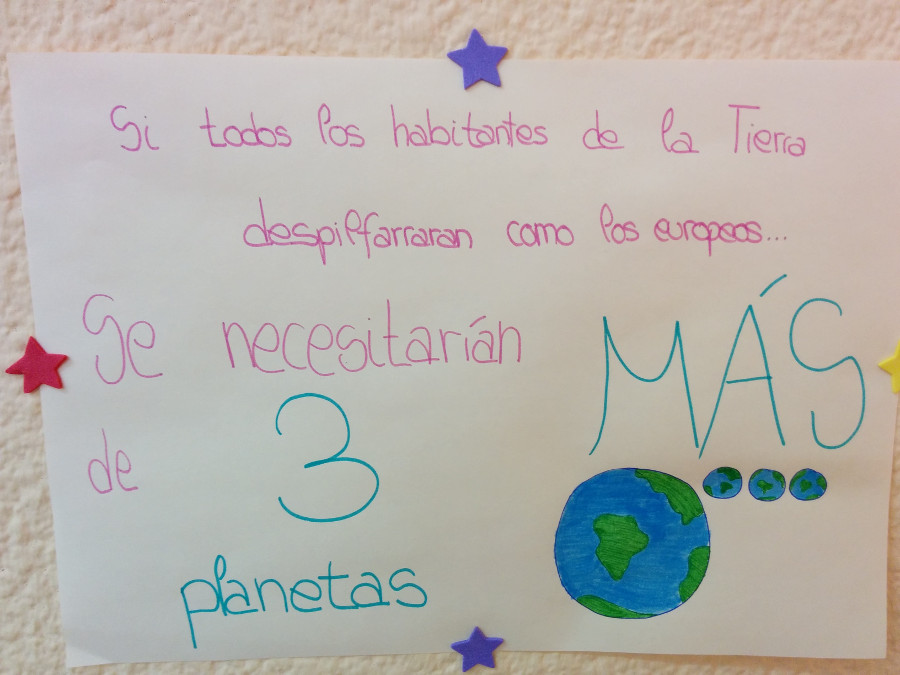 Si todos los habitantes de la Tierra
despilfarraran como los europeos...
Se necesitarían MÁS
de 3
planetas